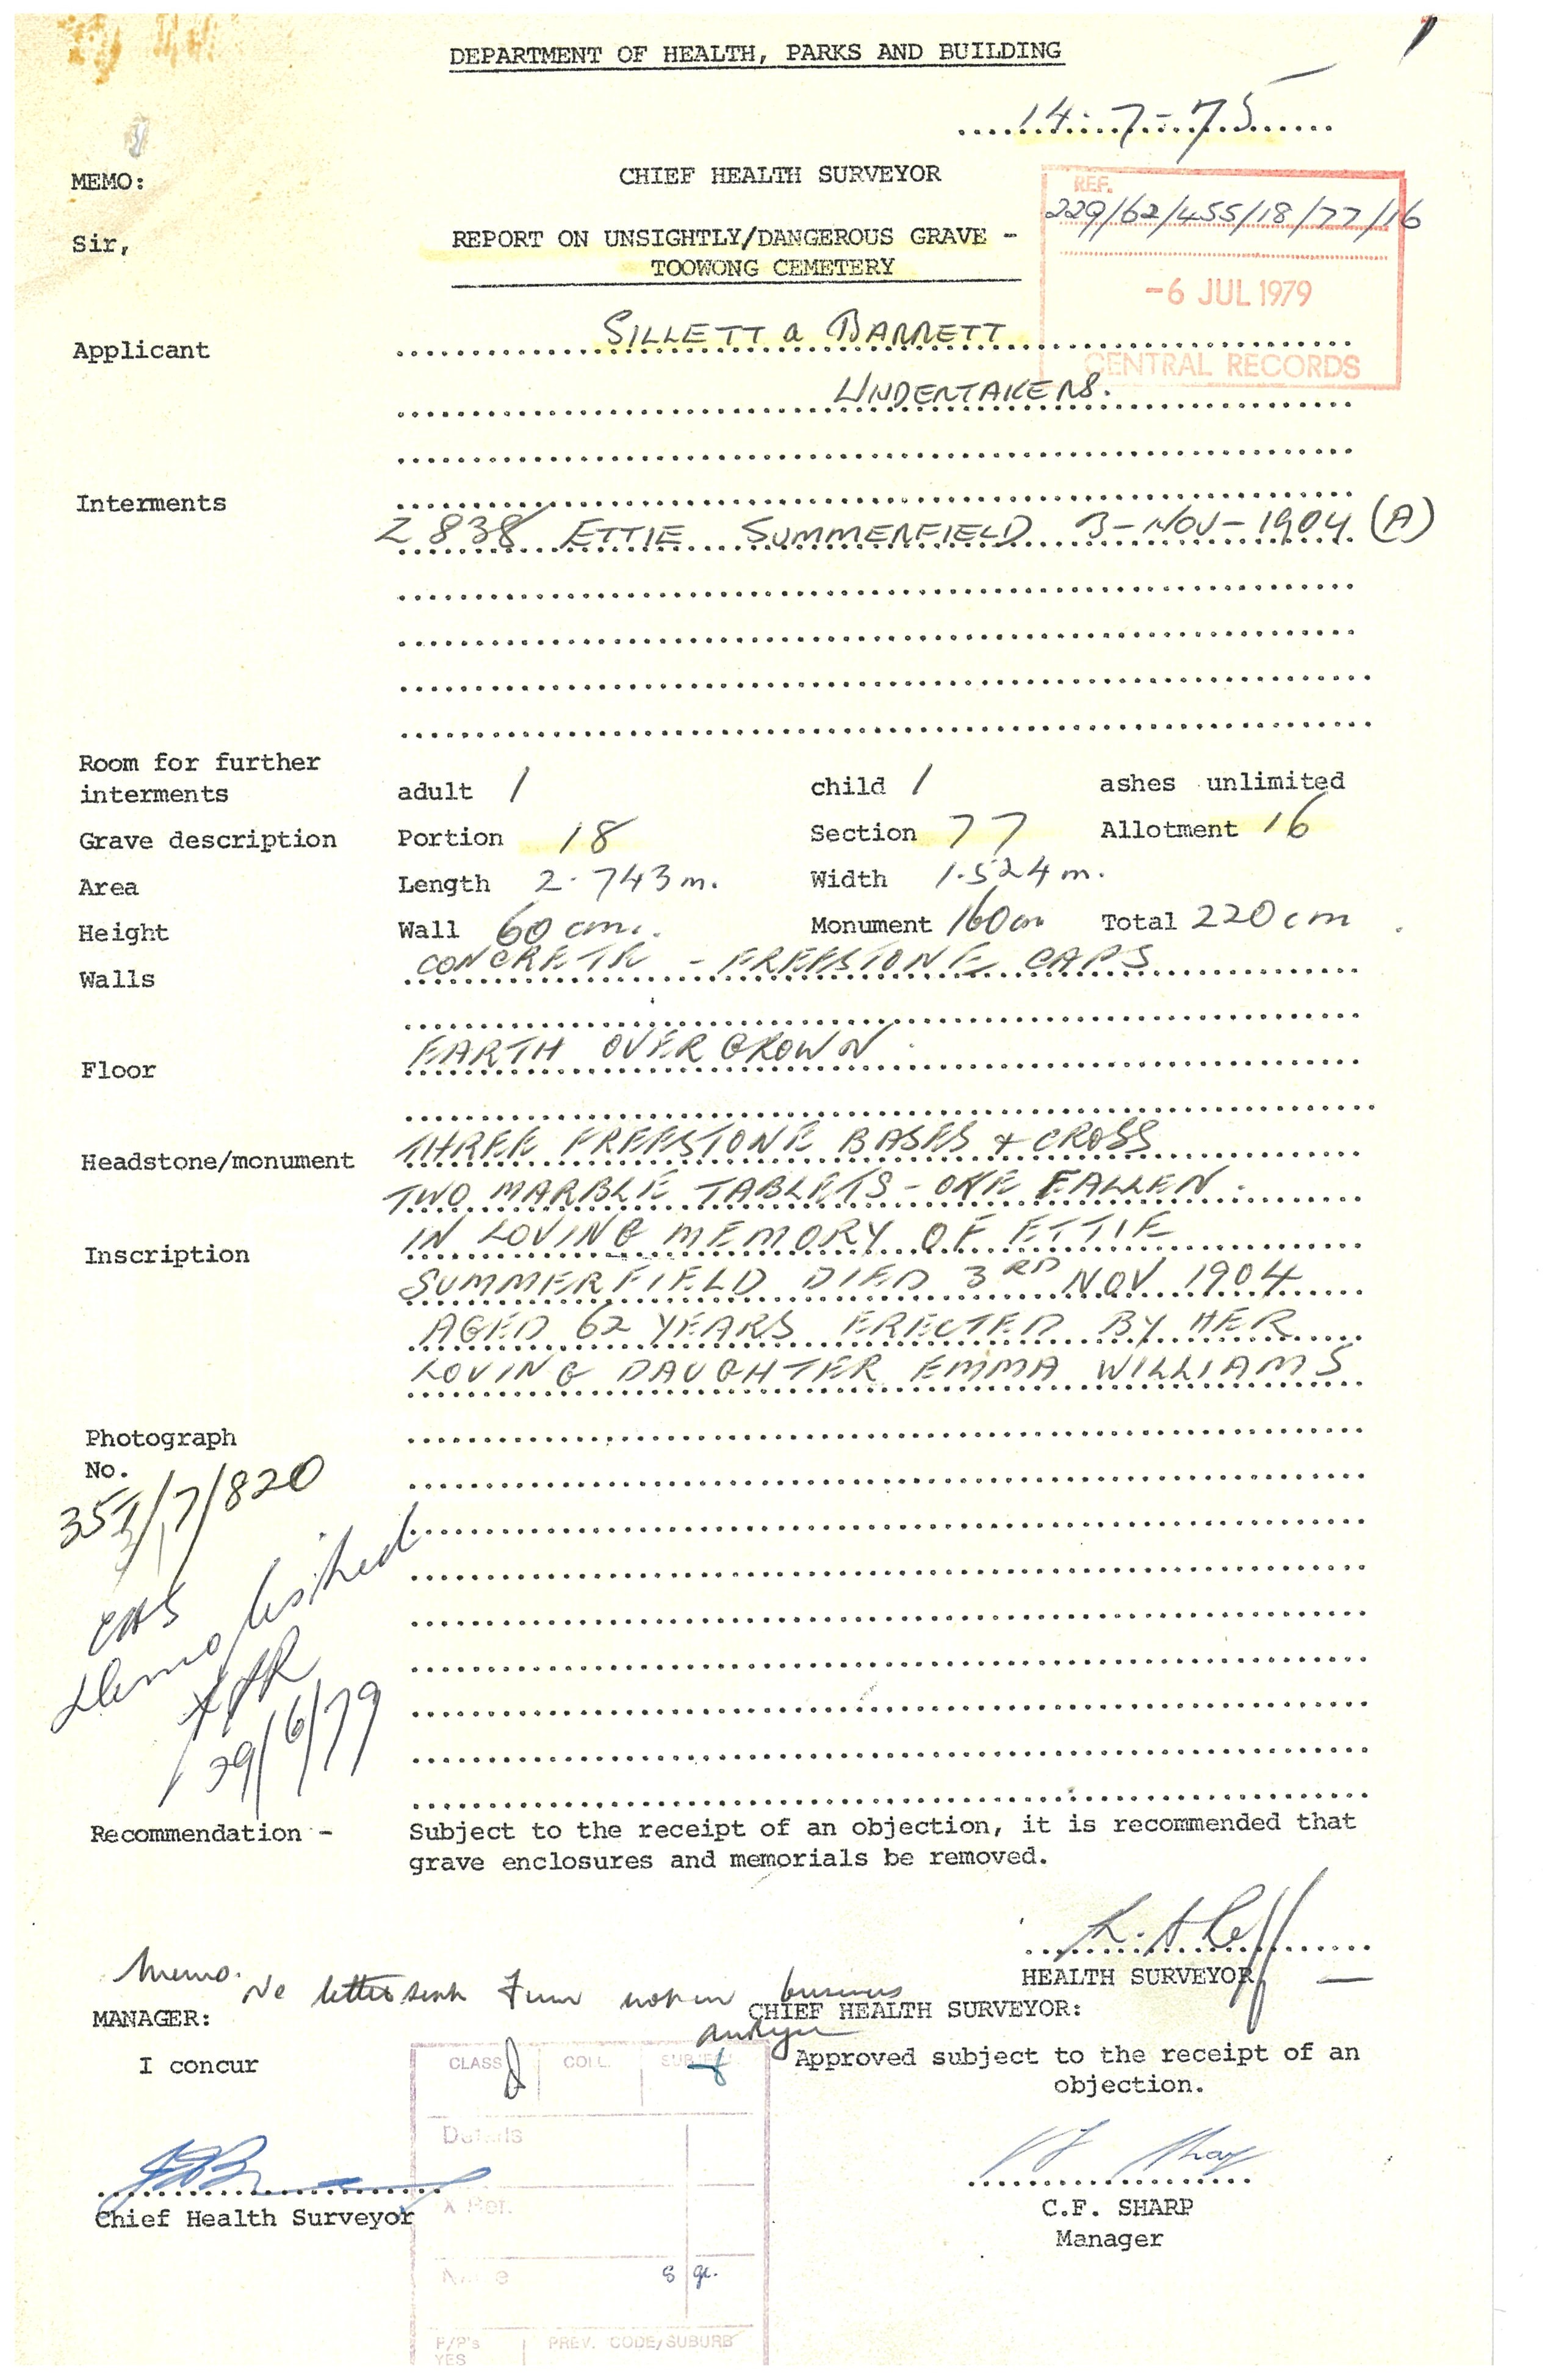 DEPARTMENT OF HEALTH, PARKS AND BUILDING
14-7-75
MEMO:
CHIEF HEALTH SURVEYOR
REF.
229/62/455/18/77/16
Sir,
REPORT ON UNSIGHTLY/DANGEROUS GRAVE -
TOOWONG CEMETERY
-6 JUL 1979
CENTRAL RECORDS
Applicant SILLETT & BARRETT
UNDERTAKERS.
Interments
2838 ETTIE SUMMERFIELD 3-NOV-1904 (A)
Room for further
interments adult 1 child 1 ashes unlimited
Grave description Portion 18 Section 77 Allotment 16
Area Length 2.743 m. Width 1.524 m.
Height Wall 60 cm. Monument 160cm Total 220cm
Walls CONCRETE - FREESTONE CAPS
Floor EARTH OVERGROWN.
Headstone/monument THREE FREESTONE BASES + CROSS
TWO MARBLE TABLETS - ONE FALLEN.
Inscription IN LOVING MEMORY OF ETTIE
SUMMERFIELD DIED 3RD NOV 1904
AGED 62 YEARS ERECTED BY HER
LOVING DAUGHTER EMMA WILLIAMS
Photograph
No.
/7/820
CHS
Demolished
29/6/79
Recommendation - Subject to the receipt of an objection, it is recommended that
grave enclosures and memorials be removed.
HEALTH SURVEYOR
Memo. No letter sent Firm not in business
MANAGER:
CHIEF HEALTH SURVEYOR:
I concur
Approved subject to the receipt of an
objection.
CLASS COLL. SUBJECT
Details
X Ref.
Chief Health Surveyor
C.F. SHARP
Manager
Name 8 gr.
P/P's PREV. CODE/SUBURB
YES